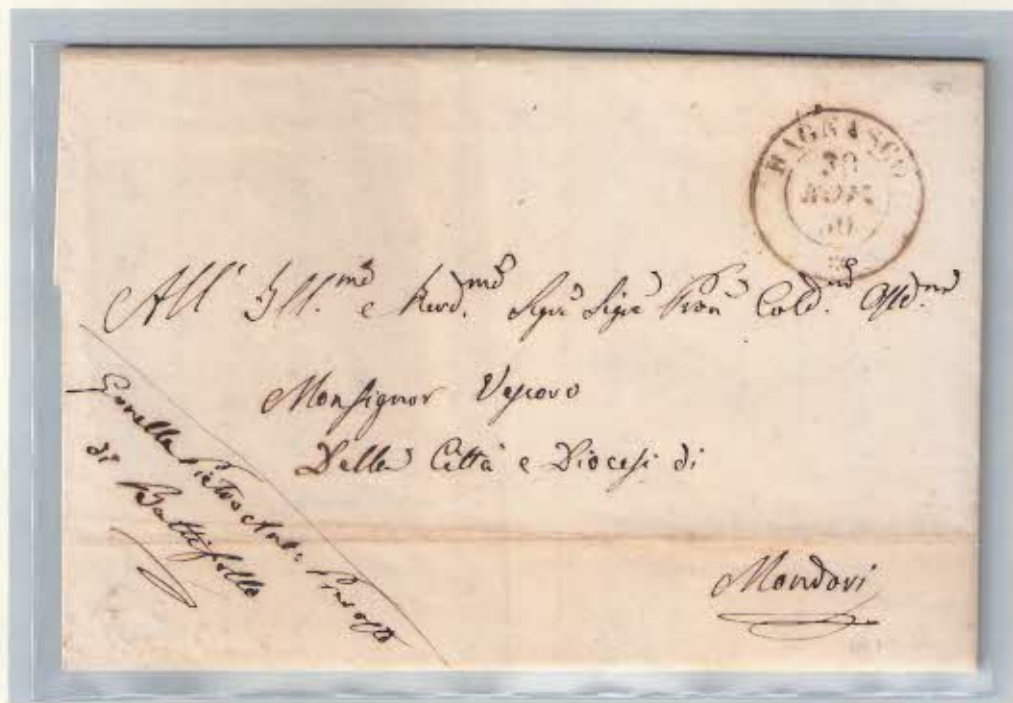 BAGNASCO
30
NOV
All' Ill.mo e Revd.mo Sigr Sigre Pron Cold.mo
Monsignor Vescovo
Della Città e Diocesi di
Mondovi
Gonella Pietro Ant.o Prevosto
di Battifollo